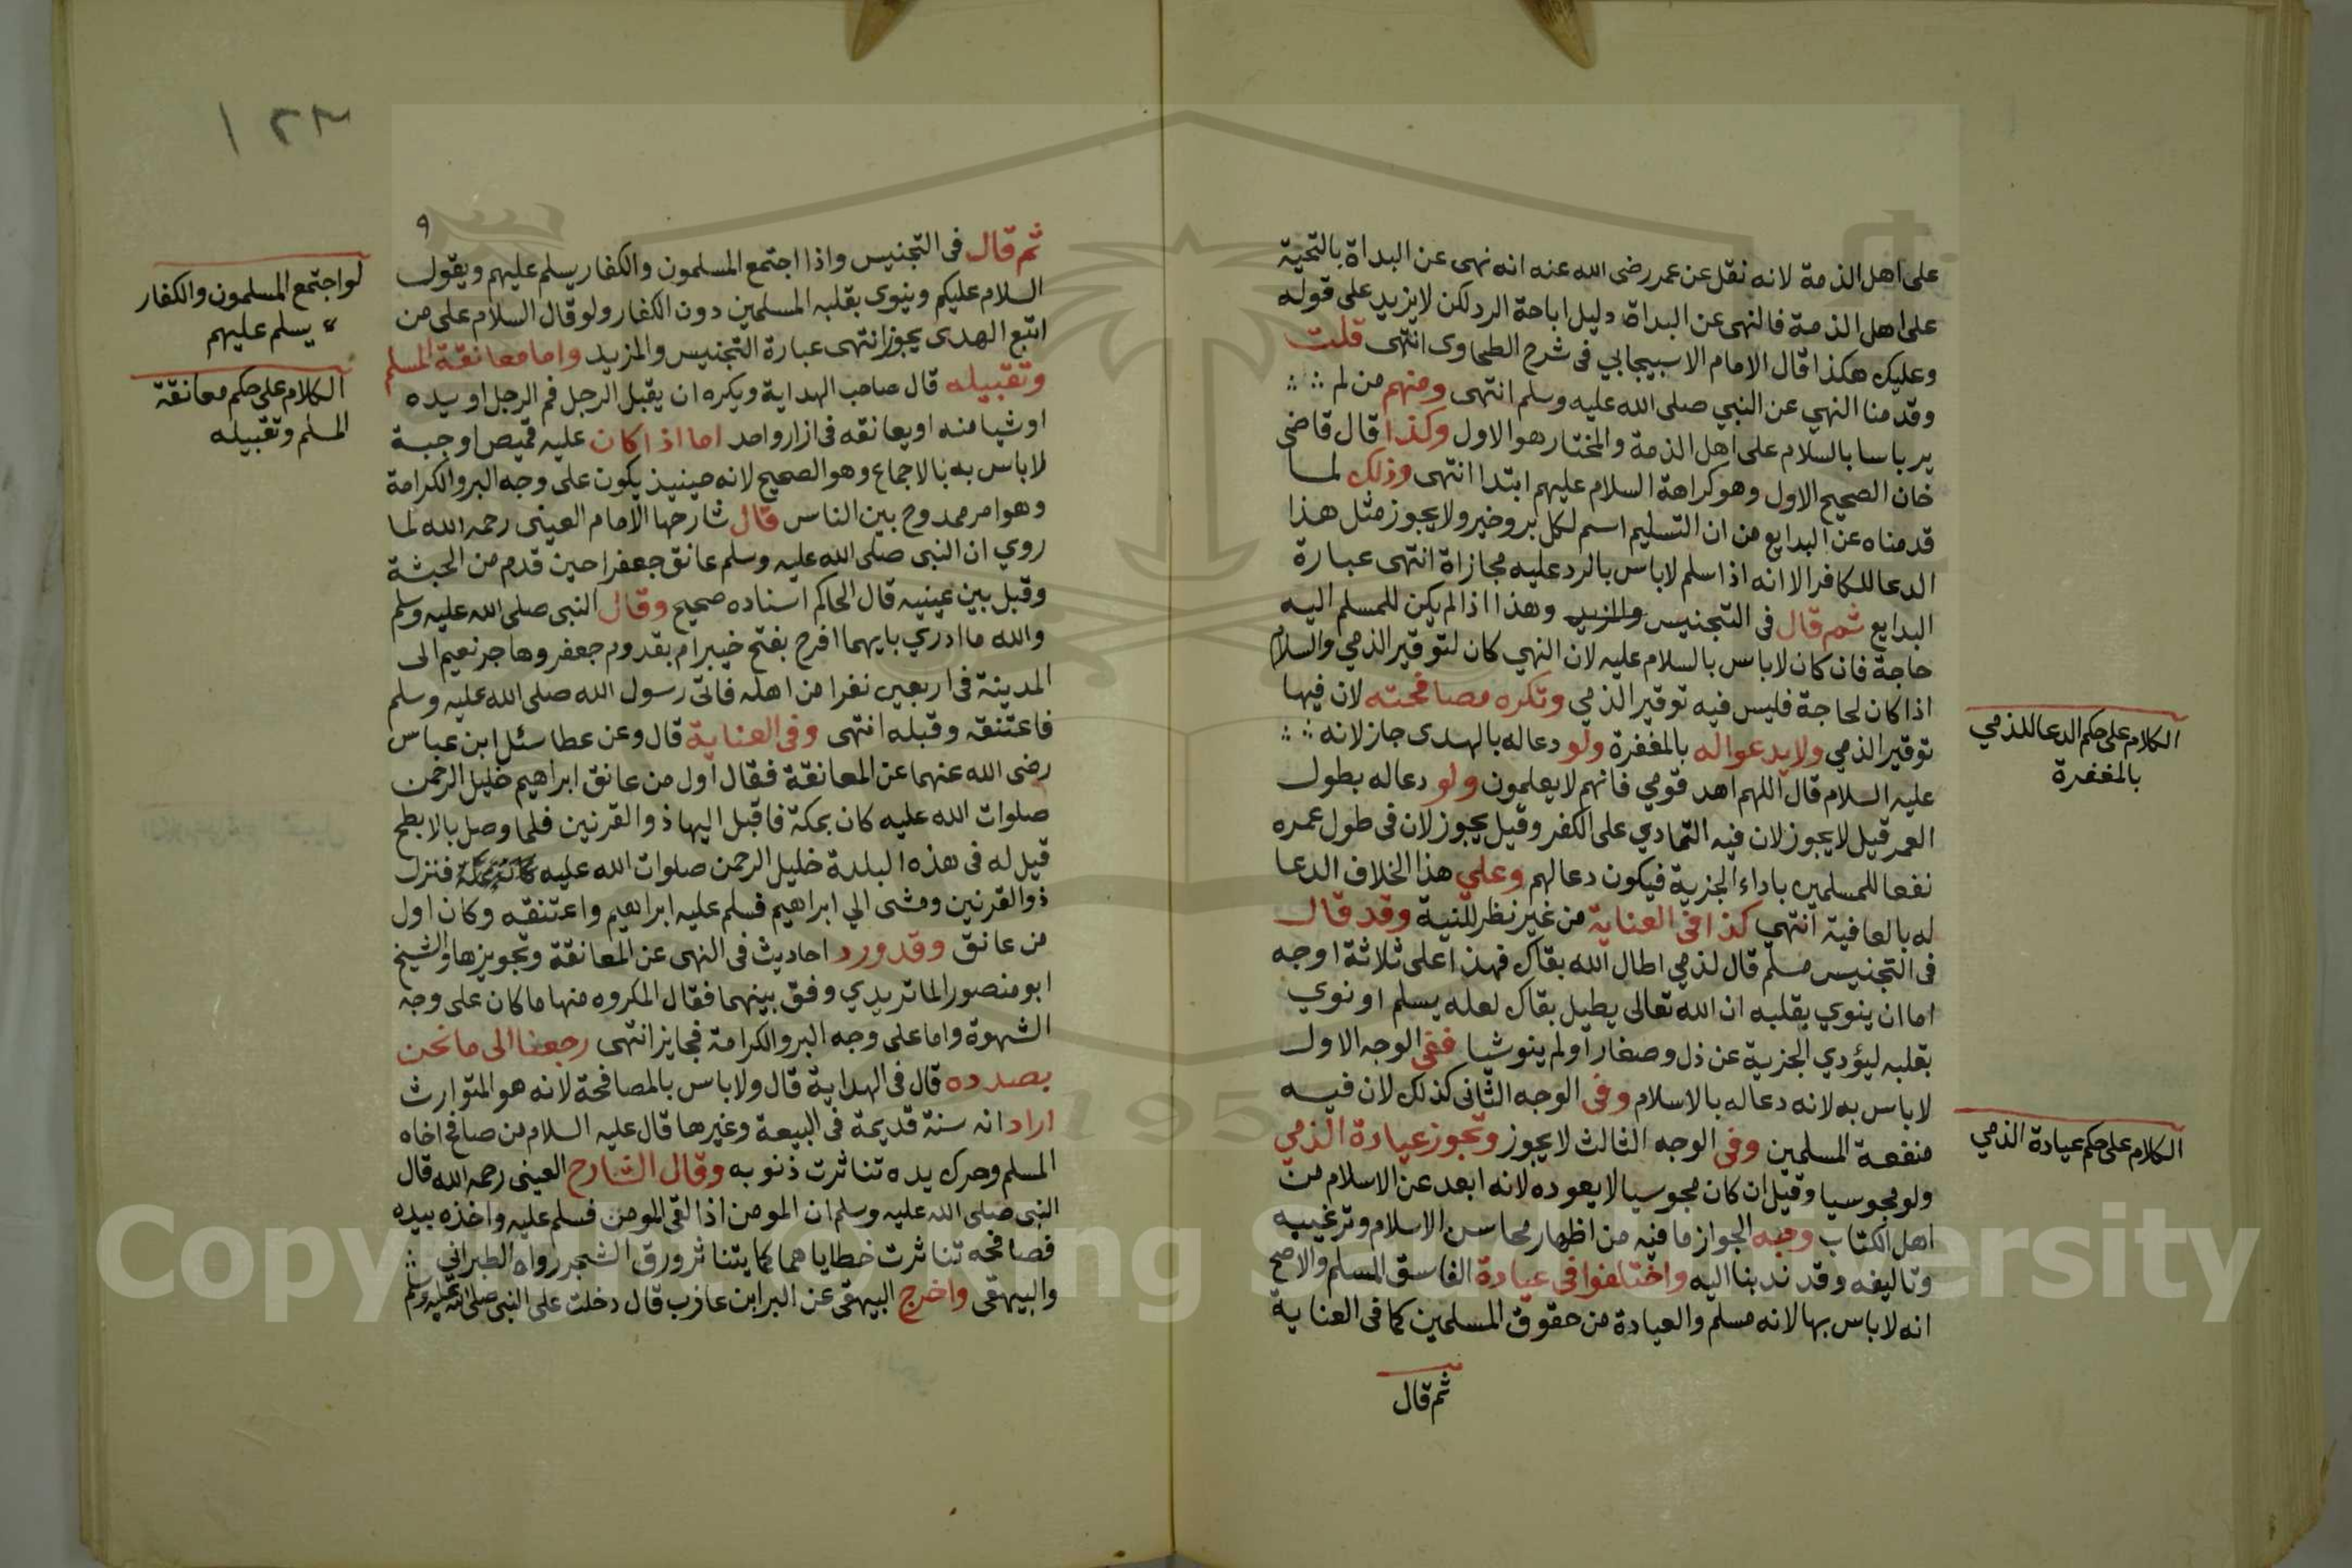 على اهل الذمة لانه نقل عن عمر رضى الله عنه انه نهى عن البداة بالتحية
على اهل الذمة فالنهى عن البداة دليل اباحة الرد لكن لا يزيد على قوله
وعليك هكذا قال الامام الاسبيجابي فى شرح الطحاوى انتهى قلت
وقد منا النهي عن النبي صلى الله عليه وسلم انتهى ومنهم من لم
ير باسا بالسلام على اهل الذمة والمختار هو الاول وكذا قال قاضى
خان الصحيح الاول وهو كراهة السلام عليهم ابتدا انتهى وذلك لما
قدمناه عن البدايع من ان التسليم اسم لكل بر وخير ولا يجوز مثل هذا
الدعا للكافر الا انه اذا سلم لاباس بالرد عليه مجازاة انتهى عبارة
البدايع ثم قال فى التجنيس والمزيد وهذا اذا لم يكن للمسلم اليه
حاجة فان كان لاباس بالسلام عليه لان النهي كان لتوقير الذمي والسلام
اذا كان لحاجة فليس فيه توقير الذمي وتكره مصافحته لان فيها
توقير الذمي ولا يدعوا له بالمغفرة ولو دعا له بالهدى جاز لانه
عليه السلام قال اللهم اهد قومي فانهم لا يعلمون ولو دعا له بطول
العمر قيل لا يجوز لان فيه التمادي على الكفر وقيل يجوز لان فى طول عمره
نفعا للمسلمين باداء الجزية فيكون دعا لهم وعلي هذا الخلاف الدعا
له بالعافية انتهي كذا فى العناية من غير نظر للنية وقد قال
فى التجنيس مسلم قال لذمي اطال الله بقاك فهذا على ثلاثة اوجه
اما ان ينوي بقلبه ان الله تعالى يطيل بقاك لعله يسلم او نوي
بقلبه ليؤدي الجزية عن ذل وصغار او لم ينو شيا ففى الوجه الاول
لاباس به لانه دعا له بالاسلام وفى الوجه الثانى كذلك لان فيه
منفعة المسلمين وفى الوجه الثالث لا يجوز وتجوز عيادة الذمي
ولو مجوسيا وقيل ان كان مجوسيا لا يعوده لانه ابعد عن الاسلام من
اهل الكتاب وجه الجواز ما فيه من اظهار محاسن الاسلام وترغيبه
وتاليفه وقد ندبنا اليه واختلفوا فى عيادة الفاسق المسلم والاصح
انه لاباس بها لانه مسلم والعيادة من حقوق المسلمين كما فى العناية
ثم قال
الكلام على حكم الدعا للذمي
بالمغفرة
الكلام على حكم عيادة الذمي
١٢٣
٩
ثم قال فى التجنيس واذا اجتمع المسلمون والكفار يسلم عليهم ويقول
السلام عليكم وينوي بقلبه المسلمين دون الكفار ولو قال السلام على من
اتبع الهدى يجوز انتهى عبارة التجنيس والمزيد واما معانقة المسلم
وتقبيله قال صاحب الهداية ويكره ان يقبل الرجل فم الرجل او يده
او شيا منه او يعانقه فى ازار واحد اما اذا كان عليه قميص او جبة
لاباس به بالاجماع وهو الصحيح لانه حينيذ يكون على وجه البر والكرامة
وهو امر ممدوح بين الناس قال شارحها الامام العينى رحمه الله لما
روي ان النبى صلى الله عليه وسلم عانق جعفرا حين قدم من الحبشة
وقبل بين عينيه قال الحاكم اسناده صحيح وقال النبى صلى الله عليه وسلم
والله ما ادري بايهما افرح بفتح خيبر ام بقدوم جعفر وهاجر نعيم الى
المدينة فى اربعين نفرا من اهله فاتى رسول الله صلى الله عليه وسلم
فاعتنقه وقبله انتهى وفى العناية قال وعن عطا سئل ابن عباس
رضى الله عنهما عن المعانقة فقال اول من عانق ابراهيم خليل الرحمن
صلوات الله عليه كان بمكة فاقبل اليها ذو القرنين فلما وصل بالابطح
قيل له فى هذه البلدة خليل الرحمن صلوات الله عليه فنزل
ذو القرنين ومشى الي ابراهيم فسلم عليه ابراهيم واعتنقه وكان اول
من عانق وقد ورد احاديث فى النهى عن المعانقة وتجويزها والشيخ
ابو منصور الماتريدي وفق بينهما فقال المكروه منها ما كان على وجه
الشهوة واما على وجه البر والكرامة فجايز انتهى رجعنا الى ما نحن
بصدده قال فى الهداية قال ولاباس بالمصافحة لانه هو المتوارث
اراد انه سنة قديمة فى البيعة وغيرها قال عليه السلام من صافح اخاه
المسلم وحرك يده تناثرت ذنوبه وقال الشارح العينى رحمه الله قال
النبى صلى الله عليه وسلم ان المومن اذا لقى المومن فسلم عليه واخذه بيده
فصافحه تناثرت خطاياهما كما يتناثر ورق الشجر رواه الطبراني
والبيهقى واخرج البيهقى عن البرا ابن عازب قال دخلت على النبى صلى الله عليه وسلم
لو اجتمع المسلمون والكفار
يسلم عليهم
الكلام على حكم معانقة
المسلم وتقبيله
Copyright © King Saud University
1957